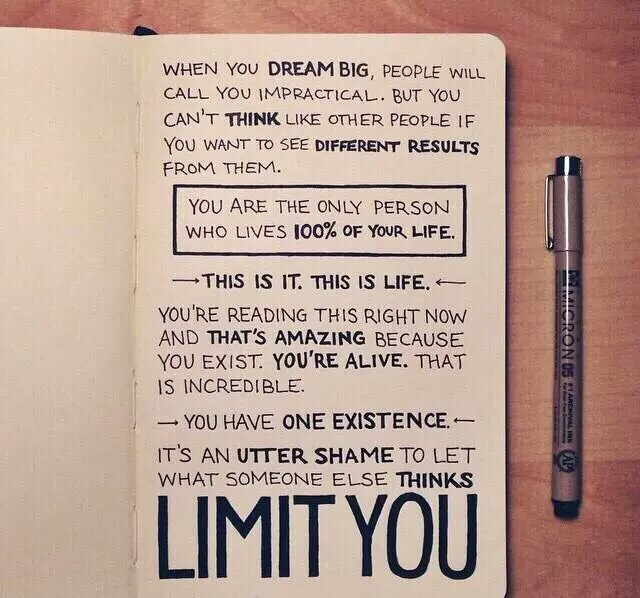 WHEN YOU DREAM BIG, PEOPLE WILL
CALL YOU IMPRACTICAL. BUT YOU
CAN'T THINK LIKE OTHER PEOPLE IF
YOU WANT TO SEE DIFFERENT RESULTS
FROM THEM.
YOU ARE THE ONLY PERSON
WHO LIVES 100% OF YOUR LIFE.
→ THIS IS IT. THIS IS LIFE. ←
YOU'RE READING THIS RIGHT NOW
AND THAT'S AMAZING BECAUSE
YOU EXIST. YOU'RE ALIVE. THAT
IS INCREDIBLE.
→ YOU HAVE ONE EXISTENCE. ←
IT'S AN UTTER SHAME TO LET
WHAT SOMEONE ELSE THINKS
LIMIT YOU
MICRON 05
ARCHIVAL INK
AP